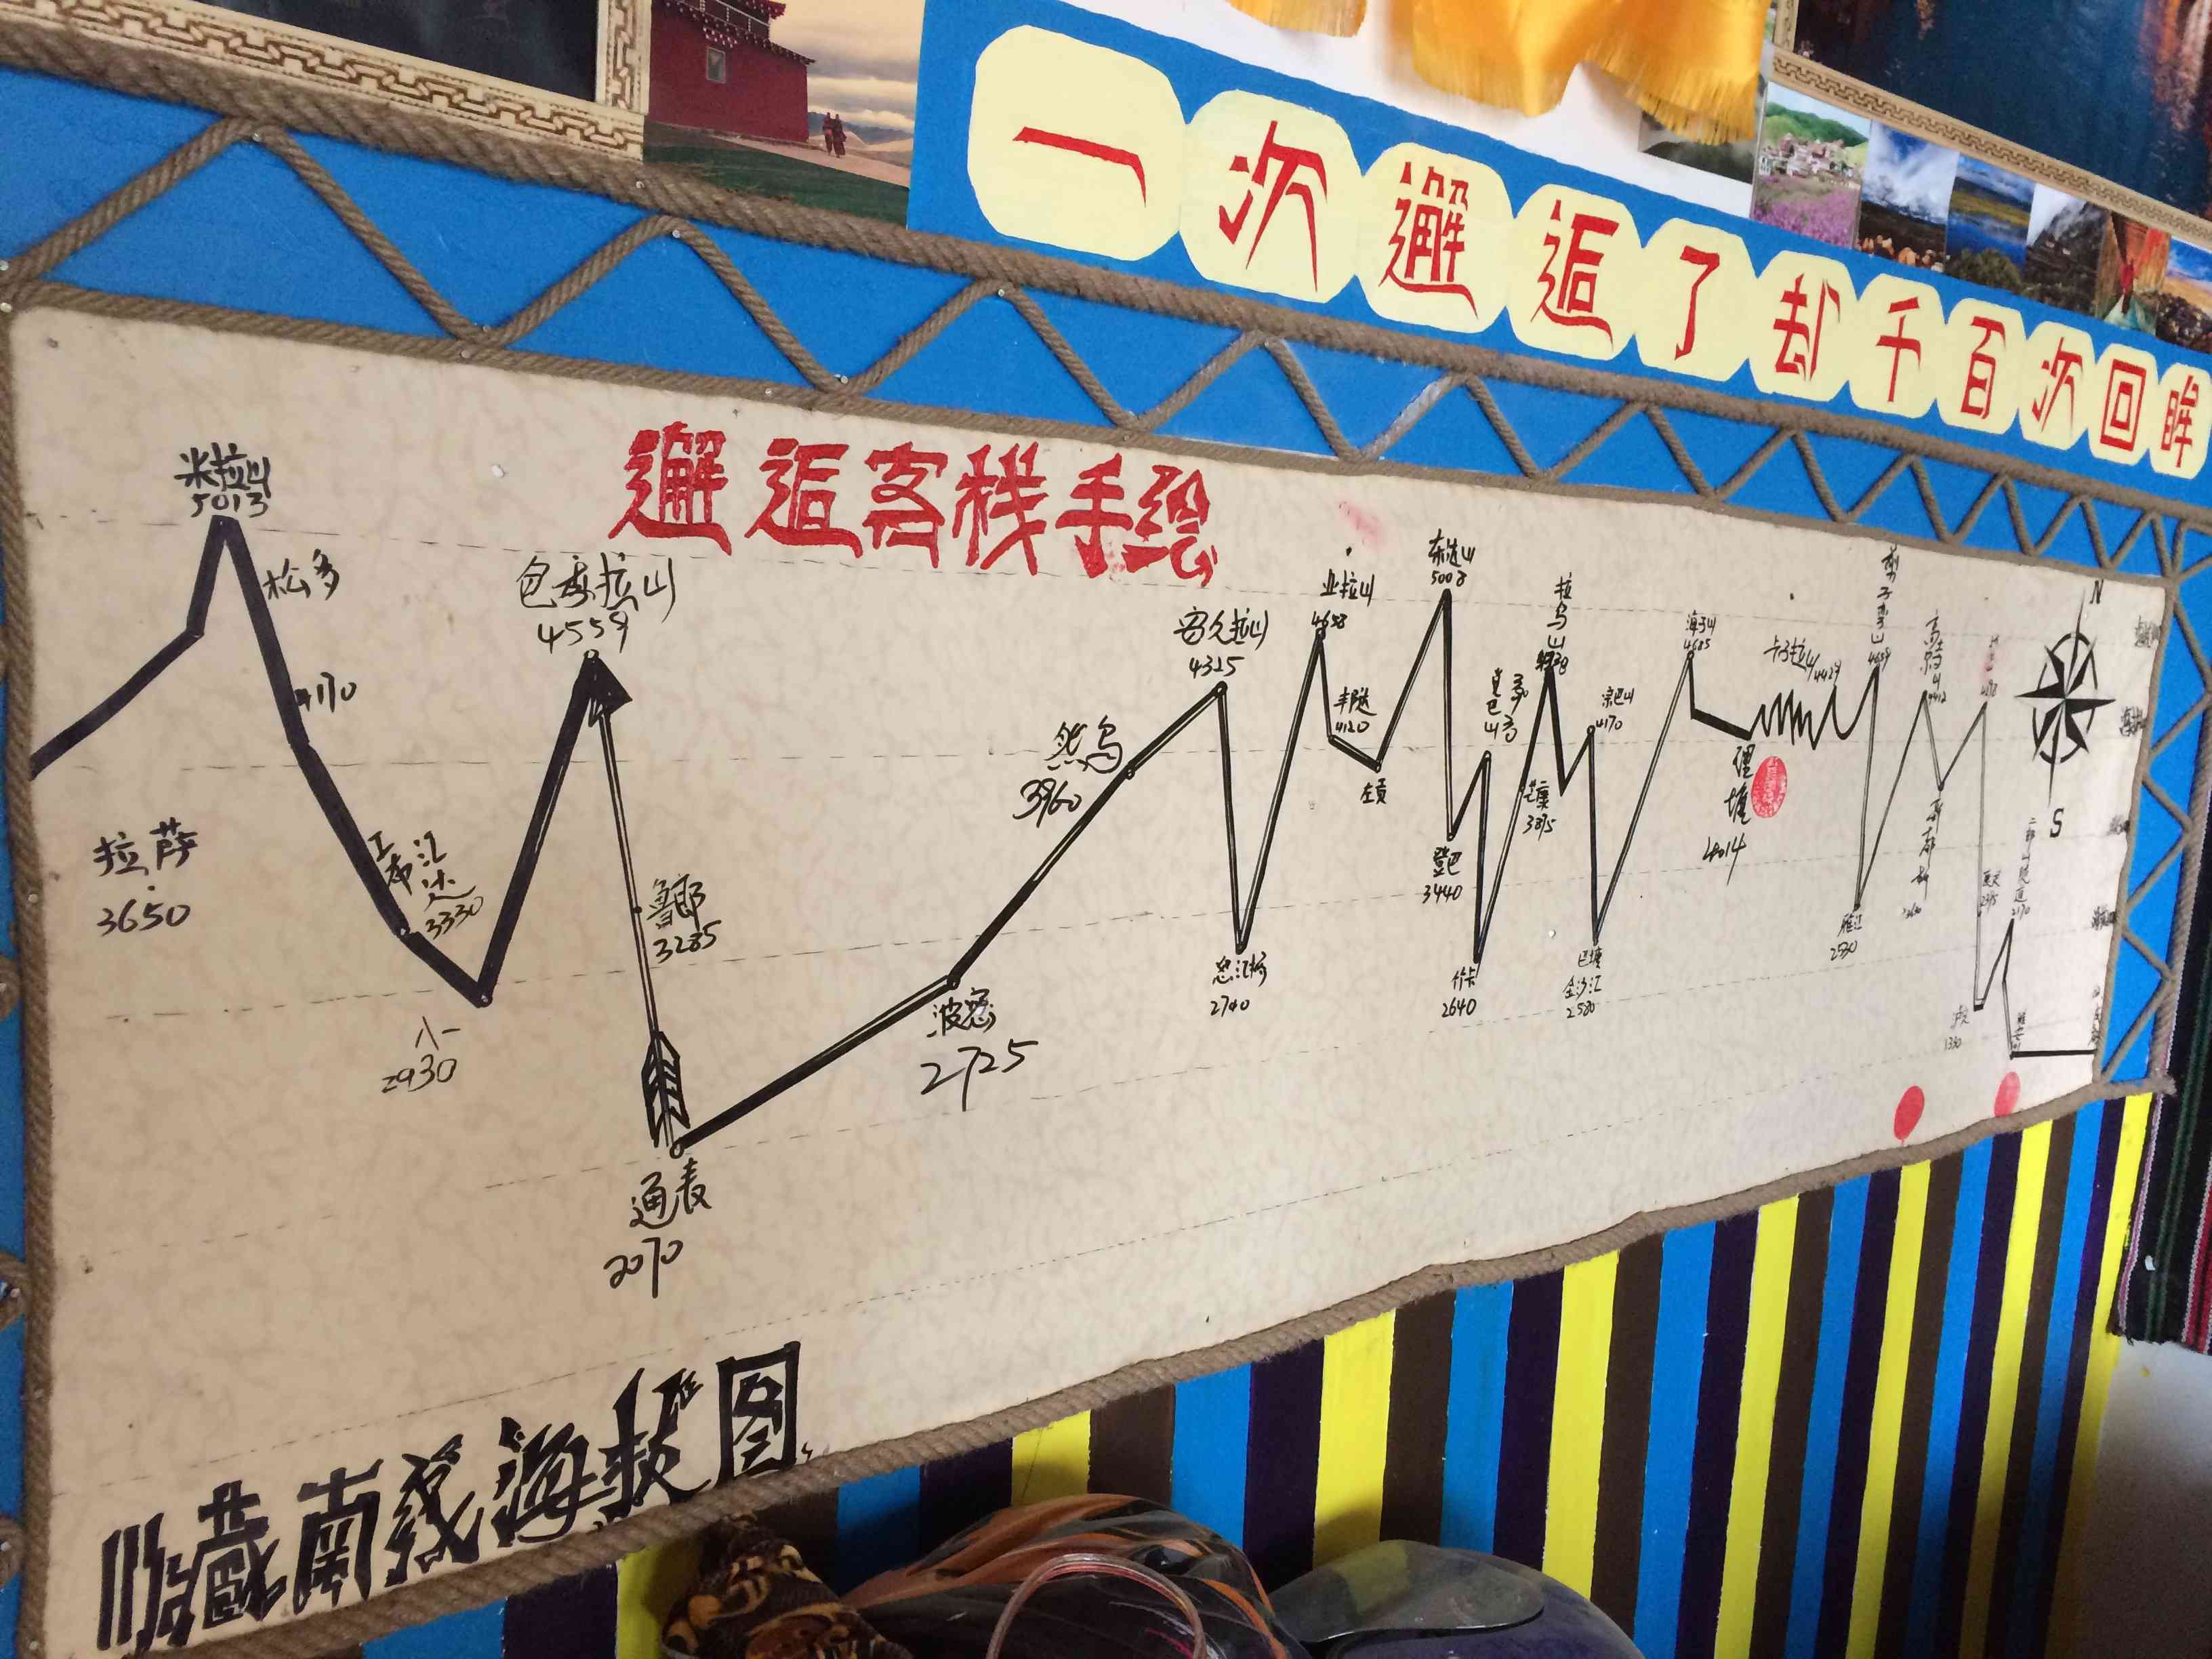 一次邂逅了却千百次回眸
邂逅客栈手绘
米拉山
5013
松多
4170
拉萨
3650
工布江达
3330
八一
2930
色季拉山
4559
鲁郎
3285
通麦
2070
波密
2725
然乌
3960
安久拉山
4325
怒江桥
2740
业拉山
4658
邦达
4120
左贡
东达山
5008
登巴
3440
竹卡
2640
拉乌山
芒康
3875
宗巴山
4170
巴塘
金沙江
2580
海子山
4685
理塘
4014
卡子拉山4429
剪子弯山
4659
雅江
2530
高尔寺山
4412
新都桥
二郎山隧道
2170
泸定
1330
雅安
N
S
川藏南线海拔图